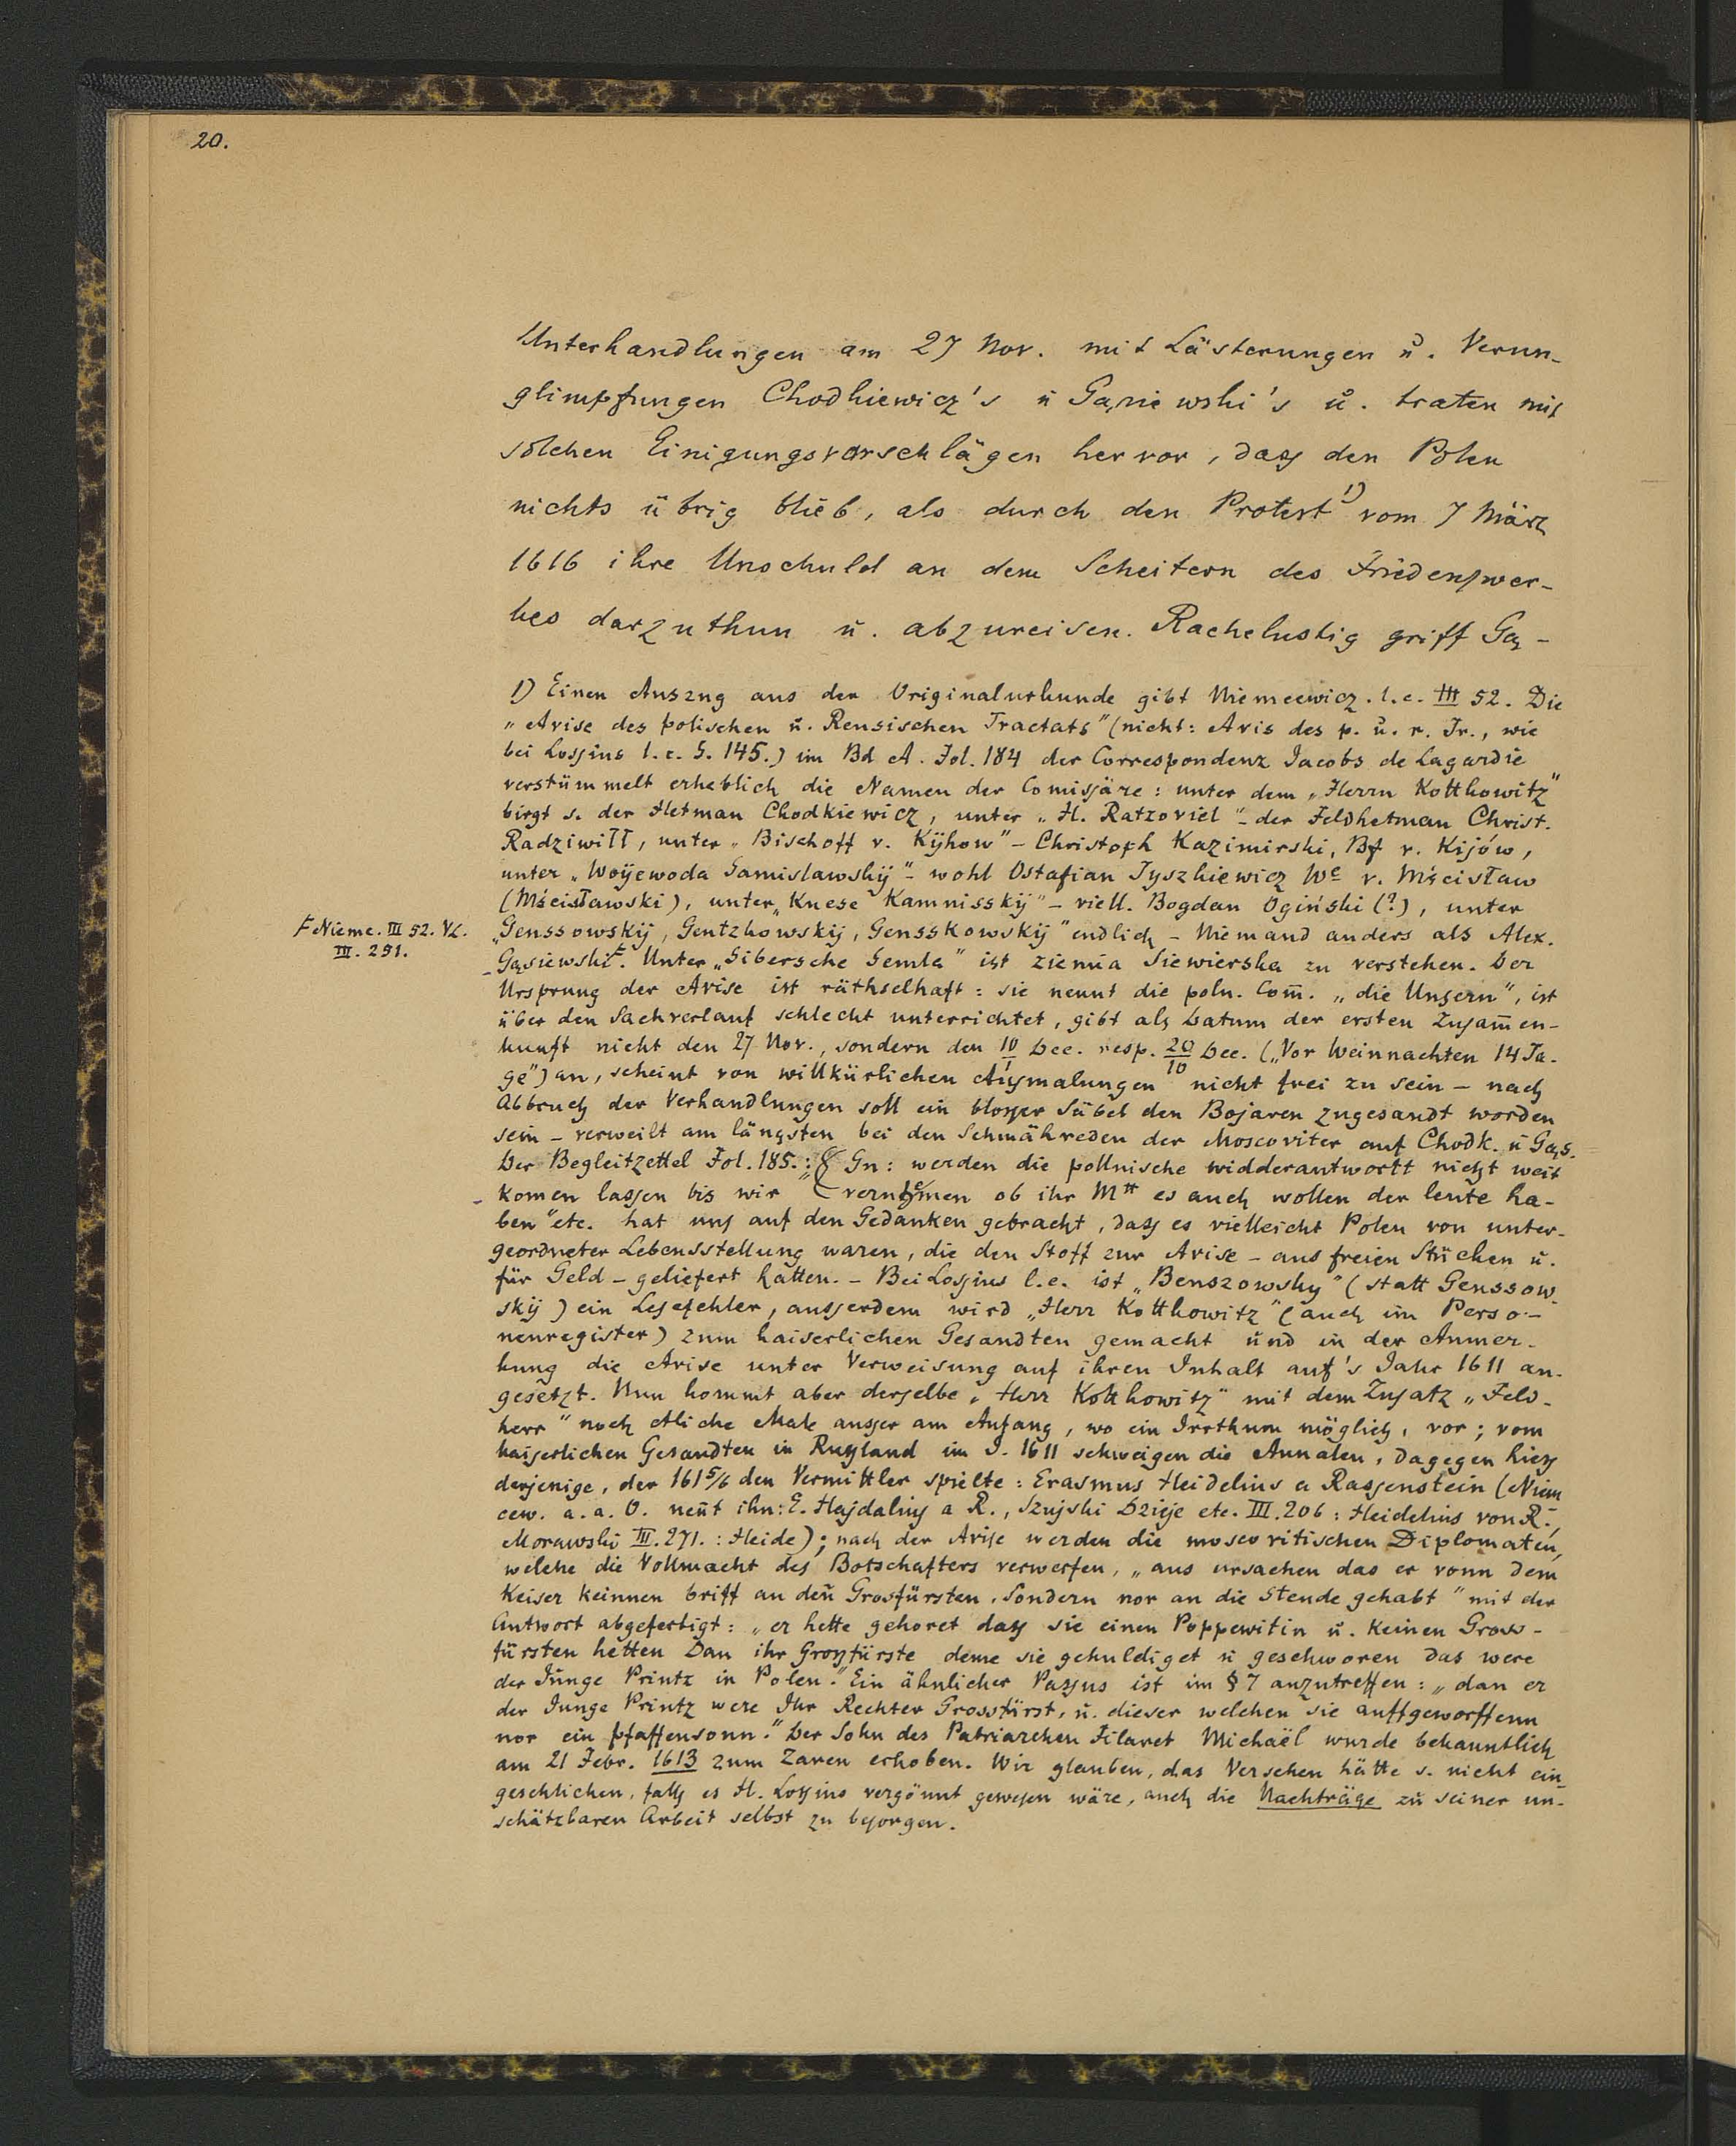 20.
Unterhandlungen am 27 Nov. mit Lästerungen u. Verun-
glimpfungen Chodkiewicz's u Gąsiewski's u. traten mit
solchen Einigungsvorschlägen hervor, dass den Polen
nichts übrig blieb, als durch den Protest 1) vom 7 März
1616 ihre Unschuld an dem Scheitern des Friedenswer-
kes darzuthun u. abzureisen. Rachelustig griff Gą-
1) Einen Auszug aus der Originalurkunde gibt Niemcewicz. l.c. III 52. Die
„Avise des polischen u. Reusischen Tractats" (nicht: Avis des p. u. r. Tr., wie
bei Lossius l.c. S. 145.) im Bd A. Fol. 184 der Correspondenz Jacobs de Lagardie
verstümmelt erheblich die Namen der Comissäre: unter dem „Herrn Kotthowitz"
birgt s. der Hetman Chodkiewicz, unter „H. Ratzoviel" – der Feldhetman Christ.
Radziwiłł, unter „Bischoff v. Kÿhow" – Christoph Kazimirski, Bf v. Kijów,
unter „Woÿewoda Samislawskÿ" – wohl Ostafian Tyszkiewicz We v. Mścisław
(Mścisławski), unter „Knese Kamnisskÿ" – viell. Bogdan Ogiński (?), unter
„Genssowskÿ, Gentzkowskÿ, Gensskowskÿ" endlich – Niemand anders als Alex.
F Niemc. III 52. VL.
III. 251.
Gąsiewski F. Unter „Sibersche Semla" ist ziemia Siewierska zu verstehen. Der
Ursprung der Avise ist räthselhaft: sie nennt die poln. Com̅. „die Unsern", ist
über den Sachverlauf schlecht unterrichtet, gibt als Datum der ersten Zusam̅en-
kunft nicht den 27 Nov., sondern den 10/1 Dec. resp. 20/10 Dec. („Vor Weinnachten 14 Ta-
ge") an, scheint von willkürlichen Ausmalungen nicht frei zu sein – nach
Abbruch der Verhandlungen soll ein blosser Säbel den Bojaren zugesandt worden
sein – verweilt am längsten bei den Schmähreden der Moscoviter auf Chodk. u Gąs.
Der Begleitzettel Fol. 185.: Gn: werden die pollnische widderantwortt nicht weit
komen lassen bis wir vernehmen ob ihr Mtt es auch wollen der leute ha-
ben" etc. hat uns auf den Gedanken gebracht, dass es vielleicht Polen von unter-
geordneter Lebensstellung waren, die den Stoff zur Avise – aus freien Stücken u.
für Geld – geliefert hatten. – Bei Lossius l.c. ist „Benszowsky" (statt Genssow-
skÿ) ein Lesefehler, ausserdem wird „Herr Kotthowitz" (auch im Perso-
nenregister) zum kaiserlichen Gesandten gemacht und in der Anmer-
kung die Avise unter Verweisung auf ihren Inhalt auf's Jahr 1611 an-
gesetzt. Nun kommt aber derselbe „Herr Kotthowitz" mit dem Zusatz „Feld-
herr" noch etliche Male ausser am Anfang, wo ein Irrthum möglich, vor; vom
kaiserlichen Gesandten in Russland im J. 1611 schweigen die Annalen, dagegen hiess
derjenige, der 1615/6 den Vermittler spielte: Erasmus Heidelius a Rassenstein (Niem
cew. a. a. O. nen̅t ihn: E. Hajdalius a R., Szujski Dzieje etc. III. 206: Heidelius von R.,
Morawski III. 271.: Heide); nach der Avise werden die moscovitischen Diplomaten,
welche die Vollmacht des Botschafters verwerfen, „aus ursachen das er vonn dem
Keiser keinnen briff an den Grosfürsten, Sondern nor an die Stende gehabt" mit der
Antwort abgefertigt: „er hette gehoret dass sie einen Poppewitin u. keinen Gross-
fürsten hetten Dan ihr Grossfürste deme sie gehuldiget u geschworen das were
der Junge Printz in Polen." Ein ähnlicher Passus ist im § 7 anzutreffen: „dan er
der Junge Printz were Ihr Rechter Grossfürst, u. dieser welchen sie auffgeworffenn
nor ein pfaffensonn." Der Sohn des Patriarchen Filaret Michaël wurde bekanntlich
am 21 Febr. 1613 zum Zaren erhoben. Wir glauben, das Versehen hätte s. nicht ein-
geschlichen, falls es H. Lossius vergönnt gewesen wäre, auch die Nachträge zu seiner un-
schätzbaren Arbeit selbst zu besorgen.